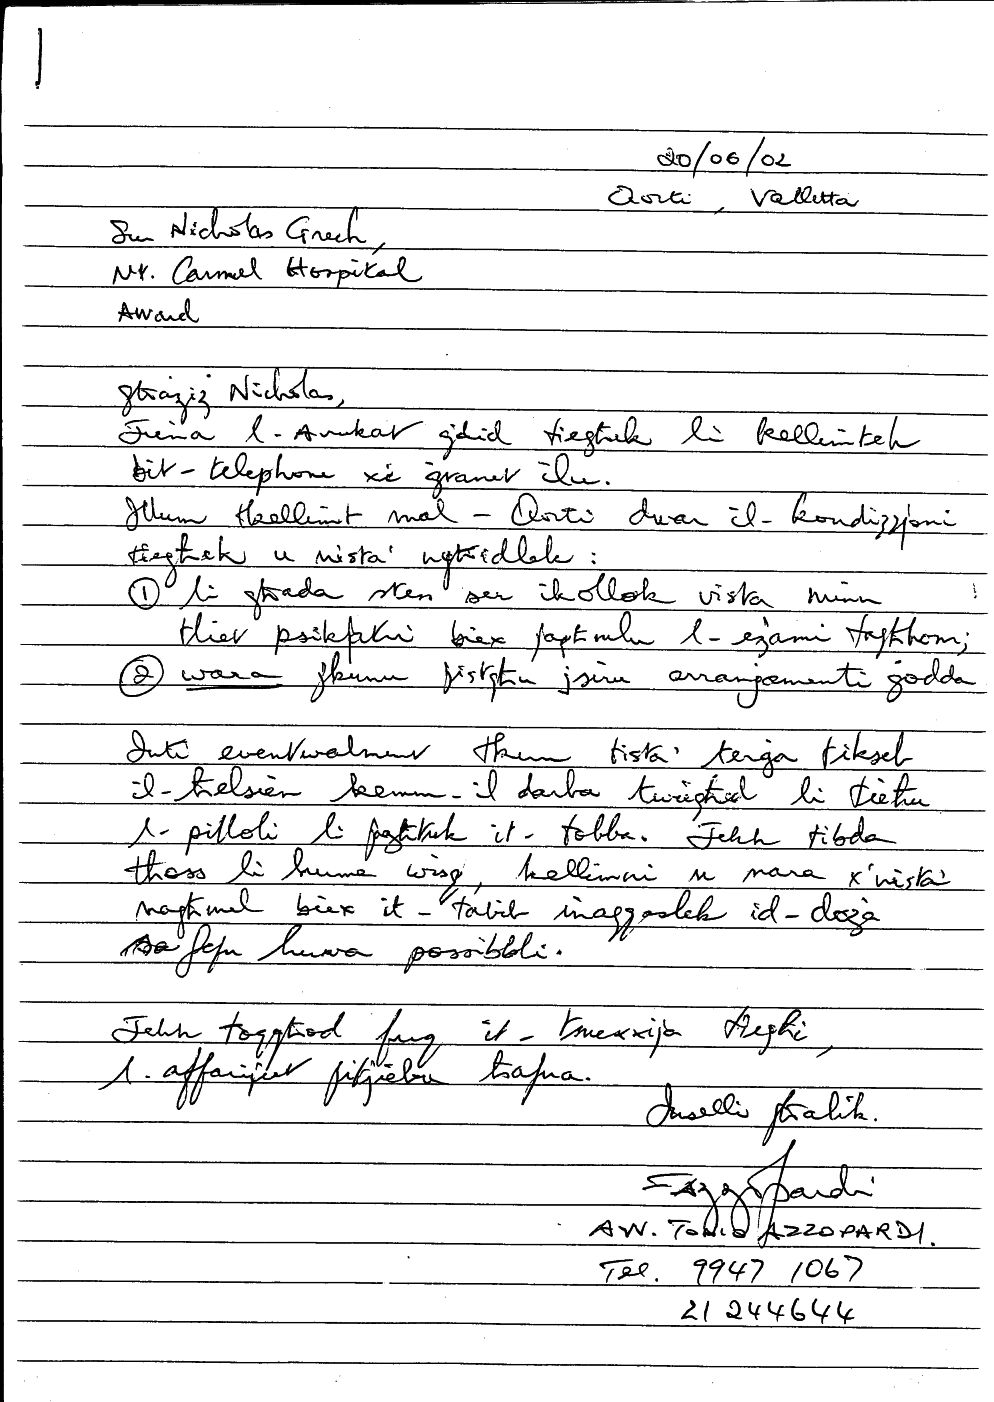 20/06/02
Qorti, Valletta
Sur Nicholas Grech,
Mt. Carmel Hospital
Award
Għażiż Nicholas,
Jiena l-Avukat ġdid tiegħek li kellimtek
bit-telephone xi ġranet ilu.
Illum tkellimt mal-Qorti dwar il-kondizzjoni
tiegħek u nista' ngħidlek :
1 li għada stess ser ikollok vista minn
tliet psikjatri biex jagħmlu l-eżami tagħhom;
2 wara jkunu jistgħu jsiru arranġamenti ġodda
Inti eventwalment tkun tista' terġa tikseb
il-ħelsien kemm-il darba turiegħed li tieħu
l-pilloli li jagħtuk it-tobba. Jekk tibda
tħoss li huma wisq, kellimni u nara x'nista'
nagħmel biex it-tabib inaqqaslek id-doża
jekk huwa possibbli.
Jekk toqgħod fuq it-tmexxija tiegħi,
l-affarijiet jitjiebu ħafna.
Inselli għalik.
Azzopardi
AV. TONIO AZZOPARDI.
Tel. 9947 1067
21 244644